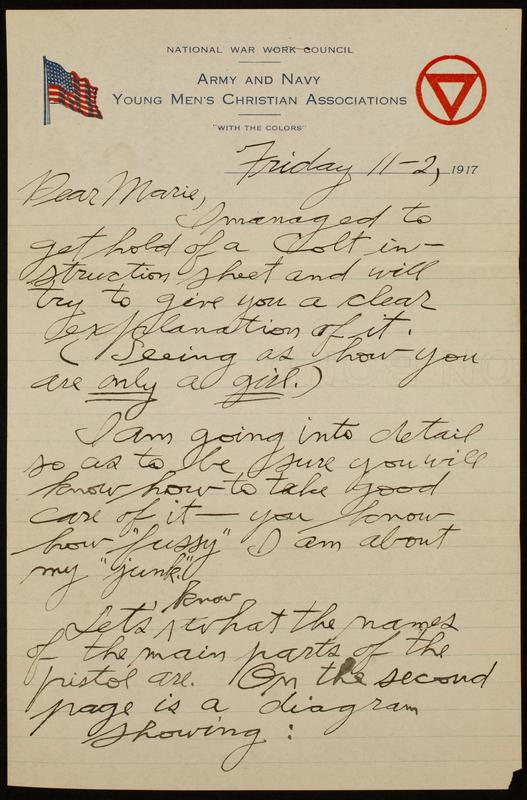 NATIONAL WAR WORK COUNCIL
ARMY AND NAVY
YOUNG MEN'S CHRISTIAN ASSOCIATIONS
"WITH THE COLORS"
Friday 11-2, 1917
Dear Marie,
I managed to
get hold of a Colt in-
struction sheet and will
try to give you a clear
explanation of it.
(Seeing as how you
are only a girl.)
I am going into detail
so as to be sure you will
know how to take good
care of it — you know
how "fussy" I am about
my "junk."
know
Let's ^ what the names
of the main parts of the
pistol are. On the second
page is a diagram
showing: